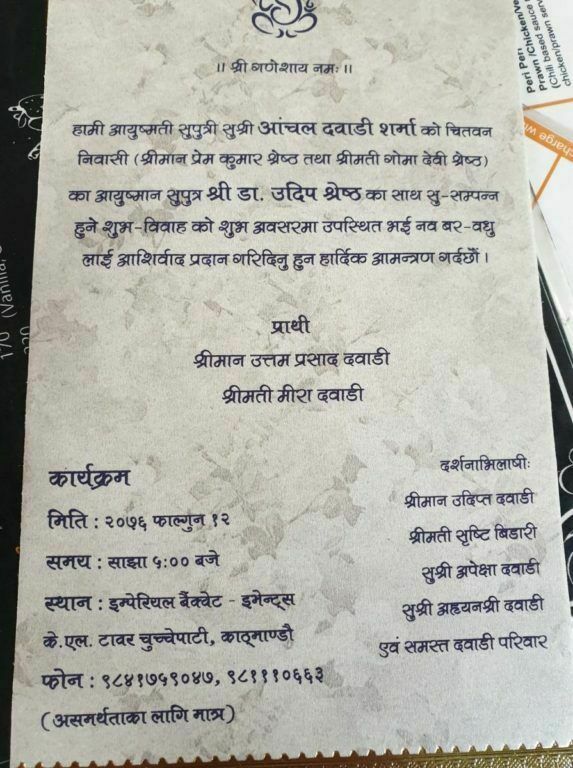 ॥ श्री गणेशाय नमः ॥
हामी आयुष्मती सुपुत्री सुश्री आंचल दवाडी शर्मा को चितवन
निवासी (श्रीमान प्रेम कुमार श्रेष्ठ तथा श्रीमती गोमा देवी श्रेष्ठ)
का आयुष्मान सुपुत्र श्री डा. उदिप श्रेष्ठ का साथ सु-सम्पन्न
हुने शुभ-विवाह को शुभ अवसरमा उपस्थित भई नव बर-वधु
लाई आशिर्वाद प्रदान गरिदिनु हुन हार्दिक आमन्त्रण गर्दछौं ।
प्रार्थी
श्रीमान उत्तम प्रसाद दवाडी
श्रीमती मीरा दवाडी
कार्यक्रम
मिति : २०७६ फाल्गुन १२
समय : साझा ५:०० बजे
स्थान : इम्पेरियल बैंक्वेट - इभेन्ट्स
के.एल. टावर चुच्चेपाटी, काठ्माण्डौ
फोन : ९८४१७५९०४७, ९८१११०६६३
(असमर्थताका लागि मात्र)
दर्शनाभिलाषीः
श्रीमान उदिप्त दवाडी
श्रीमती सृष्टि बिडारी
सुश्री अपेक्षा दवाडी
सुश्री अह्रयनश्री दवाडी
एवं समस्त दवाडी परिवार
Peri Peri
Prawn /Chicken/ve
(Chili based sauce
chicken/prawn ser
charge wi
170 (Vanilla,